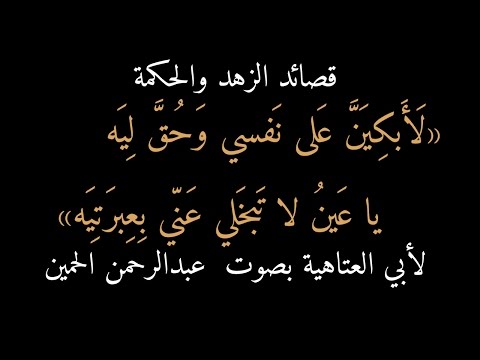 قصائد الزهد والحكمة
«لَأَبكِيَنَّ عَلى نَفسي وَحُقَّ لِيَه
يا عَينُ لا تَبخَلي عَنّي بِعِبرَتِيَه»
لأبي العتاهية بصوت عبدالرحمن الحمين